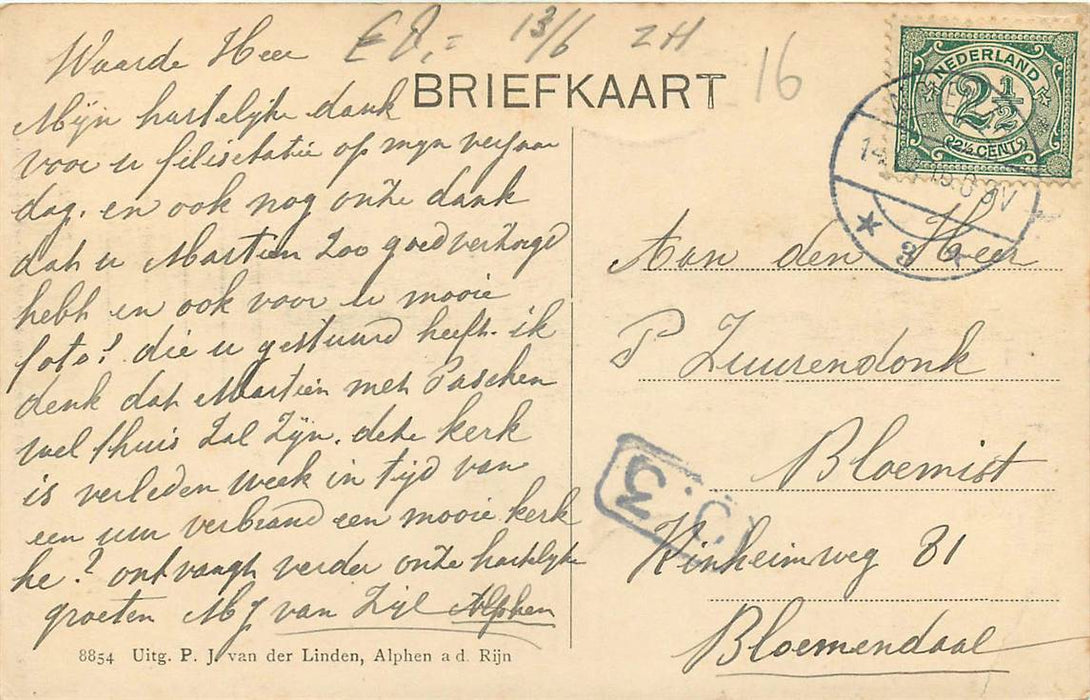 Waarde Heer
13/6 ZH
16
BRIEFKAART
Mijn hartelijke dank
voor u felisetatie op mijn verjaar
dag. en ook nog onze dank
dat u Martien zoo goed verzorgd
hebt en ook voor u mooie
foto! die u gestuurd heeft. ik
denk dat Martien met Paschen
wel thuis zal zijn. deze kerk
is verleden week in tijd van
een uur verbrand een mooie kerk
he? ontvangt verder onze hartelijke
groeten MJ van Zijl Alphen
8854 Uitg. P. J. van der Linden, Alphen a d. Rijn
NEDERLAND
2½
2½ CENT
3
Aan den Heer
P Zuurendonk
Bloemist
Kinheimweg 31
Bloemendaal
3